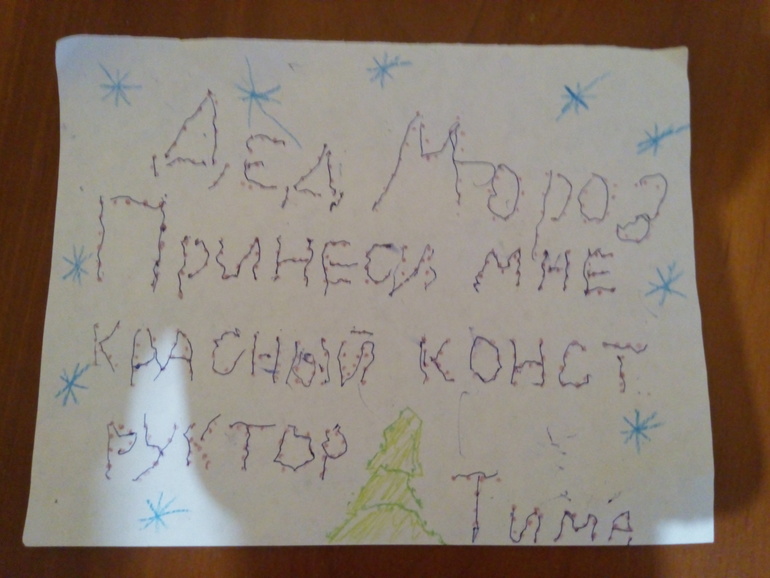 Дед Мороз
Принеси мне
красный конст
руктор
Тима